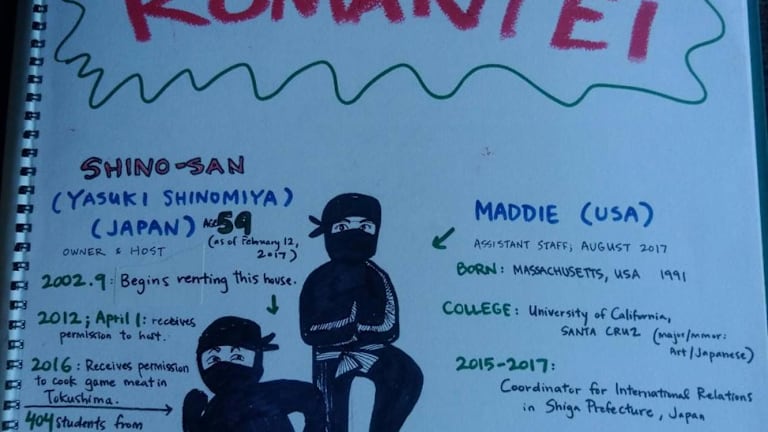 ROMANTEI
SHINO-SAN
(YASUKI SHINOMIYA)
(JAPAN) AGE 59
(as of February 12, 2017)
OWNER & HOST
2002.9: Begins renting this house.
2012; April 1: receives
permission to hunt.
2016: Receives permission
to cook game meat in
Tokushima.
404 students from
MADDIE (USA)
ASSISTANT STAFF; AUGUST 2017
BORN: MASSACHUSETTS, USA 1991
COLLEGE: University of California,
SANTA CRUZ (major/minor:
Art/Japanese)
2015-2017:
Coordinator for International Relations
in Shiga Prefecture, Japan